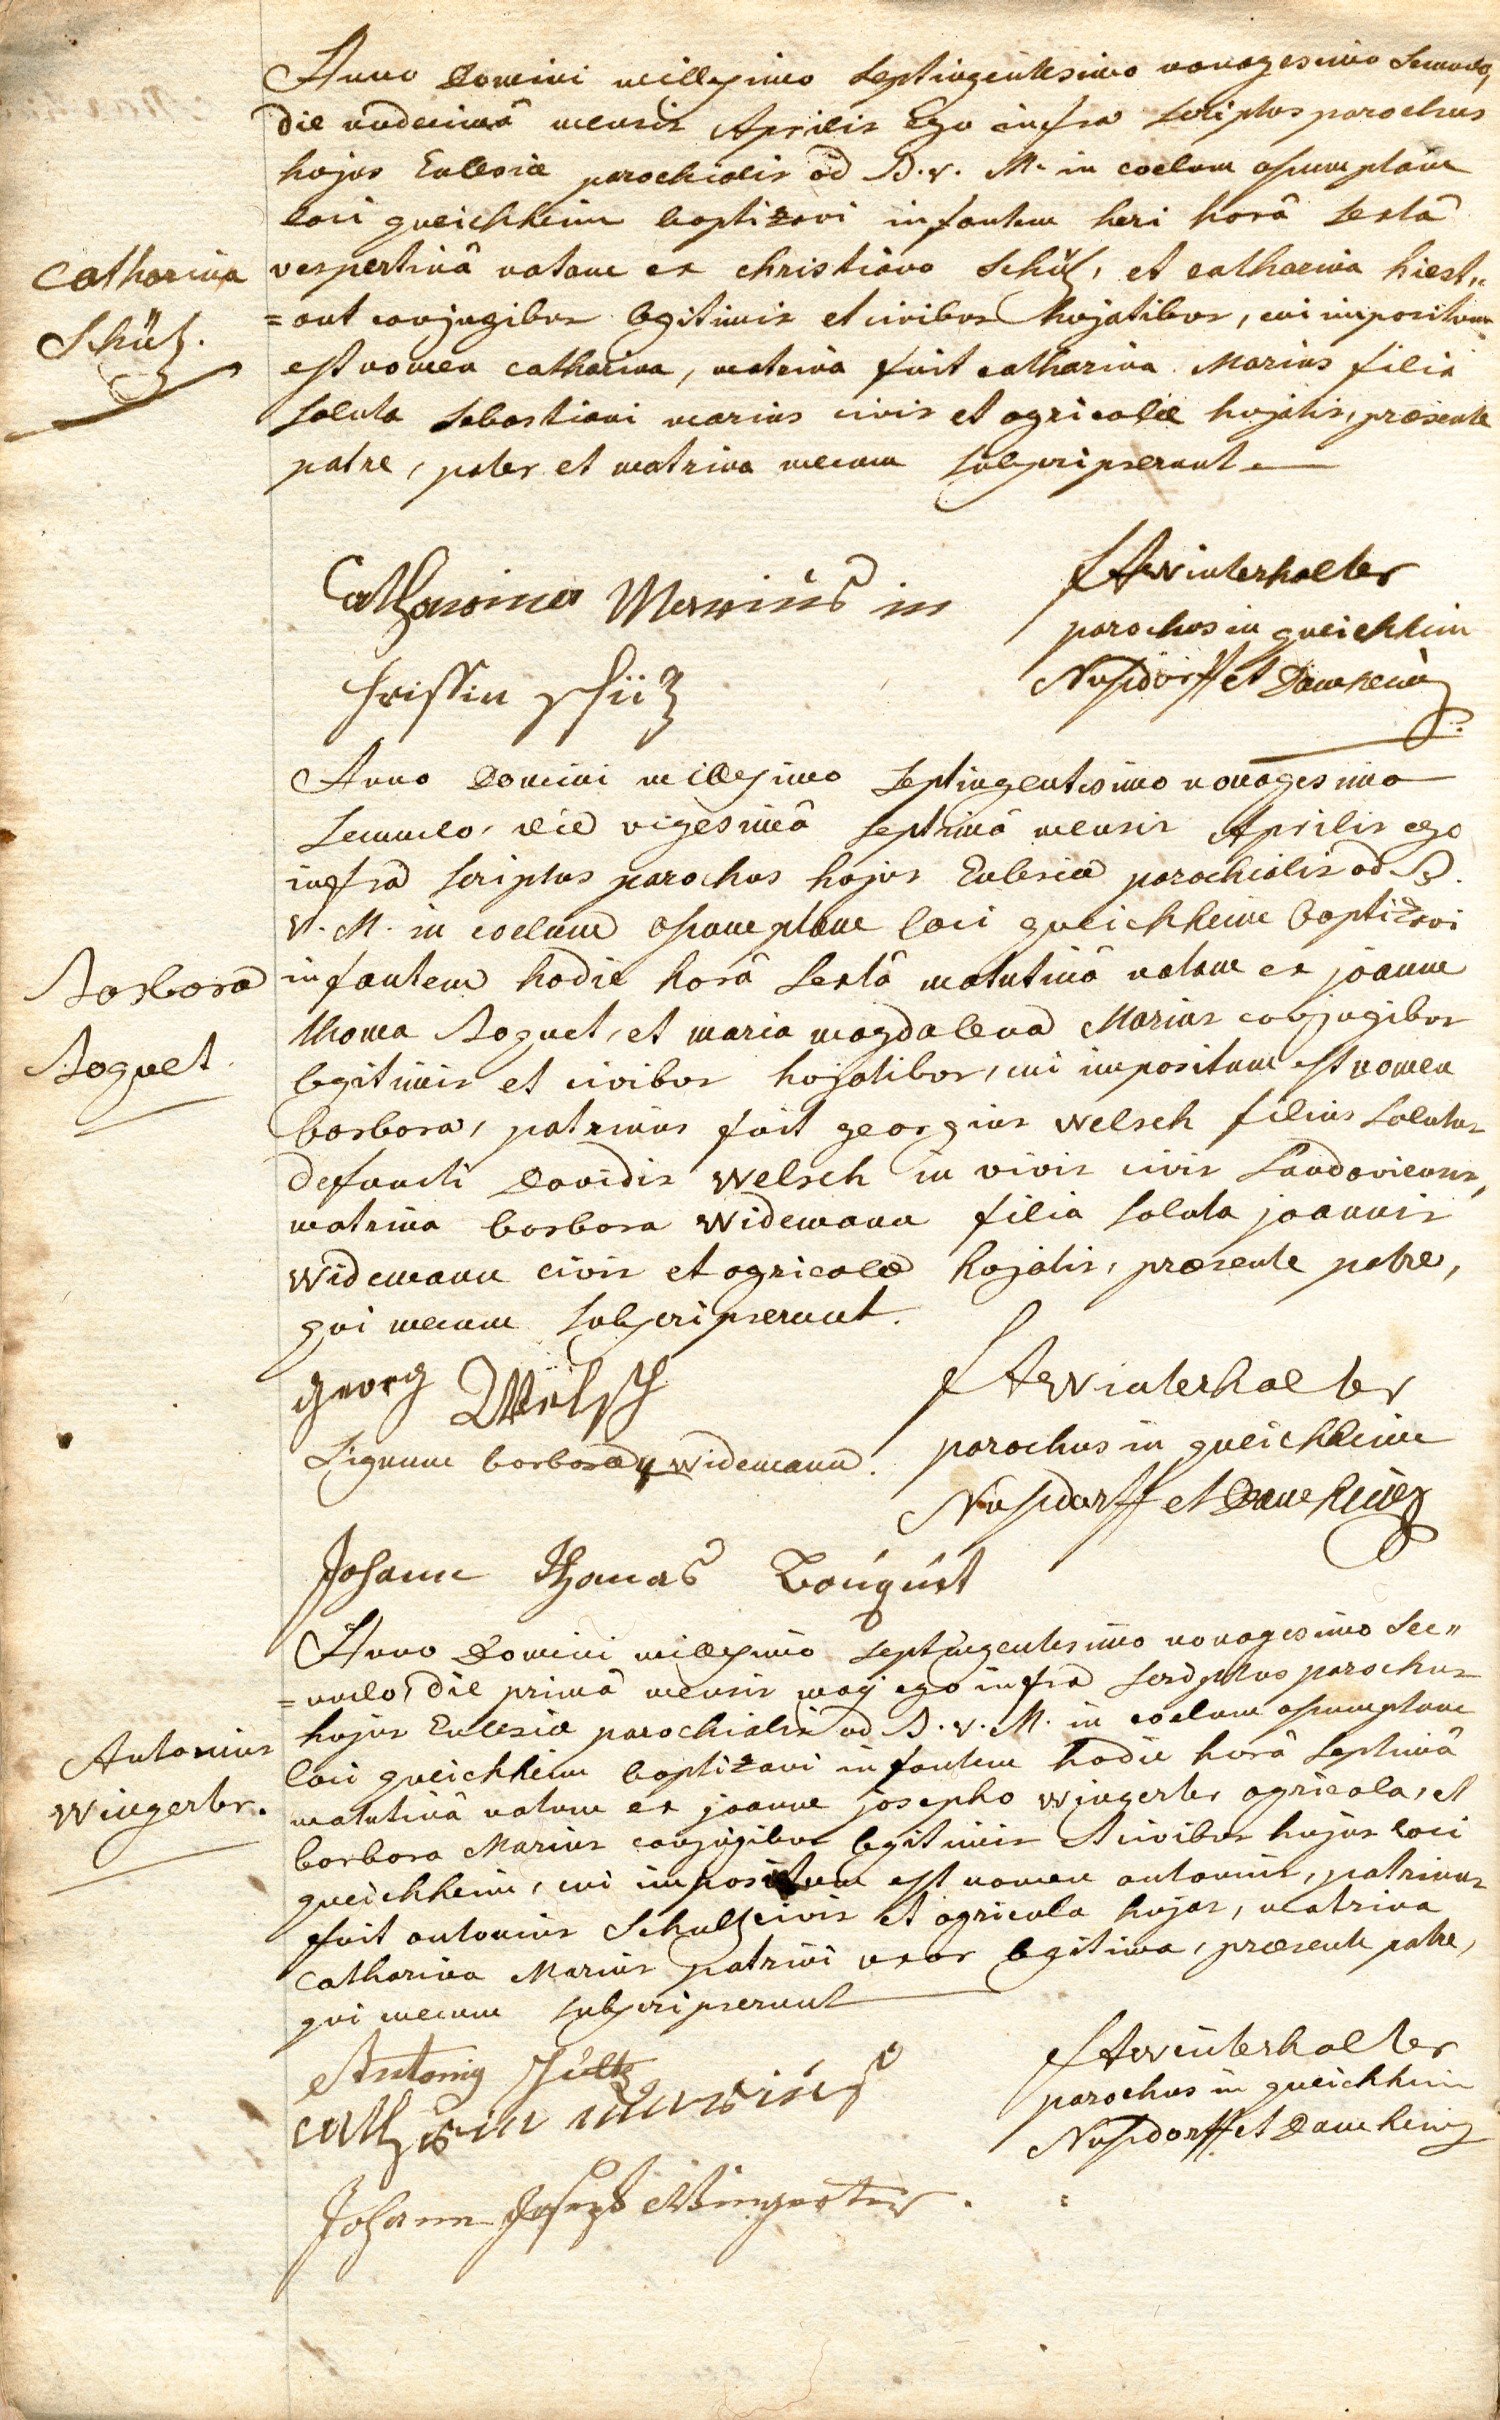 Anno Domini millesimo septingentesimo nonagesimo secundo,
die undecimâ mensis Aprilis Ego infra scriptus parochus
hujus Ecclesiæ parochialis ad B. v. M. in coelum assumptam
loci queichheim baptizavi infantem heri horâ sextâ
Catharina
Schütz.
vespertinâ natam ex christiano Schütz, et catharina hiest,,
=ant conjugibus legitimis et civibus hujatibus, cui impositum
est nomen catharina, matrina fuit catharina Marius filia
soluta sebastiani marius civis et agricolæ hujatis, præsente
patre, pater et matrina mecum subscripserunt
Catharina Marius in
fAwinterhalter
parochus in queichheim
Nusdorff et Damheim
schütz
Anno Domini millesimo septingentesimo nonagesimo
secundo, die vigesimâ septimâ mensis Aprilis ego
infra scriptus parochus hujus Ecclesiæ parochialis ad B.
V. M. in coelum assumptam loci queichheim baptizavi
Barbara
Boquet.
infantem hodie horâ sextâ matutinâ natam ex joanne
thoma Boquet, et maria magdalena Marius conjugibus
legitimis et civibus hujatibus, cui impositum est nomen
barbara, patrinus fuit georgius welsch filius solutus
defuncti Davidis welsch in vivis civis Landaviensis,
matrina barbara widemann filia soluta joannis
widemann civis et agricolæ hujatis, præsente patre,
qui mecum subscripserunt.
georg Welsch
fAwinterhalter
Signum barbaræ widemann.
parochus in queichheim
Nusdorff et Damheim
Johann Thomas Bouquet
Anno Domini millesimo septingentesimo nonagesimo sec,,
=undo, die primâ mensis maij ego infra scriptus parochus
hujus Ecclesiæ parochialis ad B. v. M. in coelum assumptam
Antonius
Wingerter.
loci queichheim baptizavi infantem hodie horâ septimâ
matutinâ natum ex joanne josepho wingerter agricola, et
barbara Marius conjugibus legitimis et civibus hujus loci
queichheim, cui impositum est nomen antonius, patrinus
fuit antonius Schultz civis et agricola hujas, matrina
catharina Marius patrini uxor legitima, præsente patre,
qui mecum subscripserunt
fAwinterhalter
parochus in queichheim
Nusdorff et Damheim
Antonig Schultz
marius
Johann Joseph Wingerter.